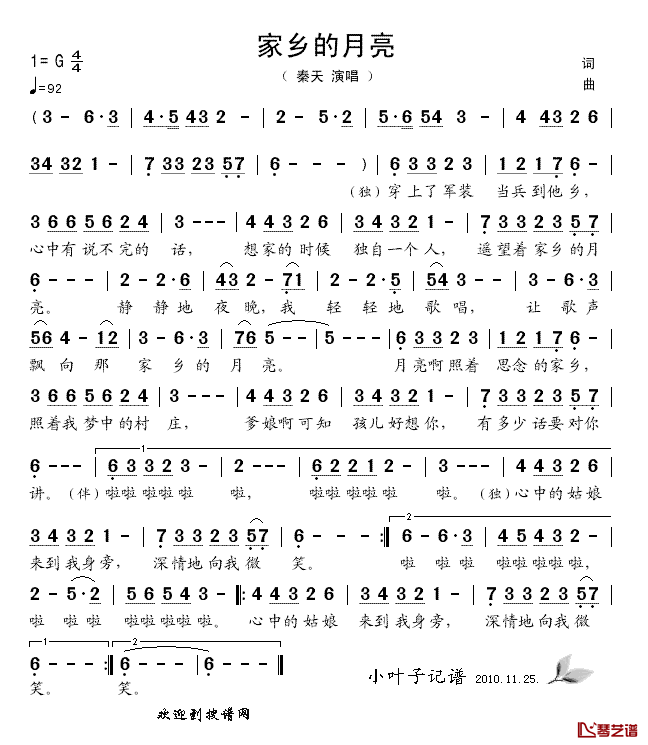 家乡的月亮
1= G 4/4
（ 秦天 演唱 ）
词
♩=92
曲
( 3 - 6·3 | 4·5 43 2 - | 2 - 2·5 | 5·6 54 3 - | 4 43 2 6 |
34 32 1 - | 7 33 23 57 | 6 - - - ) | 6 3 3 2 3 | 1 2 1 7 6 - |
（独）穿上了军装 当兵到他乡，
3 6 6 5 6 2 4 | 3 - - - | 4 4 3 2 6 | 3 4 3 2 1 - | 7 3 3 2 3 5 7 |
心中有说不完的 话， 想家的时候 独自一个人， 遥望着家乡的月
6 - - - | 2 - 2·6 | 43 2 - 71 | 2 - 2·5 | 54 3 - - | 3 - 6·3 |
亮。 静 静地 夜 晚，我 轻 轻地 歌 唱， 让 歌声
56 4 - 12 | 3 - 6·3 | 76 5 - - | 5 - - - | 6 3 3 2 3 | 1 2 1 7 6 - |
飘 向 那 家 乡 的 月 亮。 月亮啊照着 思念的家乡，
3 6 6 5 6 2 4 | 3 - - - | 4 4 3 2 6 | 3 4 3 2 1 - | 7 3 3 2 3 5 7 |
照着我梦中的村 庄， 爹娘啊可知 孩儿好想你， 有多少话要对你
1
6 - - - | 6 3 3 2 3 - | 2 - - - | 6 2 2 1 2 - | 3 - - - | 4 4 3 2 6 |
讲。（伴）啦啦 啦啦啦 啦， 啦啦 啦啦啦 啦。（独）心中的姑娘
2
3 4 3 2 1 - | 7 3 3 2 3 5 7 | 6 - - - :| 6 - 6·3 | 4 5 4 3 2 - |
来到我身旁， 深情地向我微 笑。 啦 啦 啦 啦啦啦啦啦，
2 - 5·2 | 5 6 5 4 3 - |: 4 4 3 2 6 | 3 4 3 2 1 - | 7 3 3 2 3 5 7 |
啦 啦啦 啦啦啦啦啦。 心中的姑娘 来到我身旁， 深情地向我微
1 2
6 - - - :| 6 - - - | 6 - - - ||
笑。 笑。
小叶子记谱 2010.11.25.
欢迎到搜谱网
琴艺谱